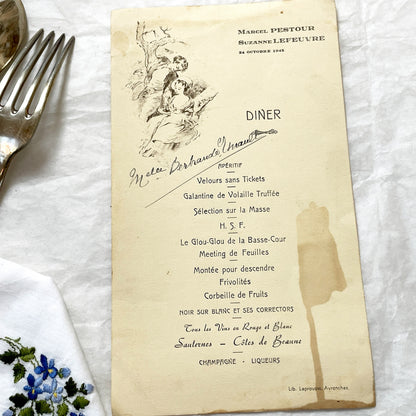 Marcel PESTOUR
Suzanne LEFEUVRE
24 OCTOBRE 1945
DINER
Melle
APÉRITIF
Velours sans Tickets
Galantine de Volaille Truffée
Sélection sur la Masse
H. S. F.
Le Glou-Glou de la Basse-Cour
Meeting de Feuilles
Montée pour descendre
Frivolités
Corbeille de Fruits
NOIR SUR BLANC ET SES CORRECTORS
Tous les Vins en Rouge et Blanc
Sauternes - Côtes de Beaune
CHAMPAGNE - LIQUEURS
Lib. Leprovost, Avranches.